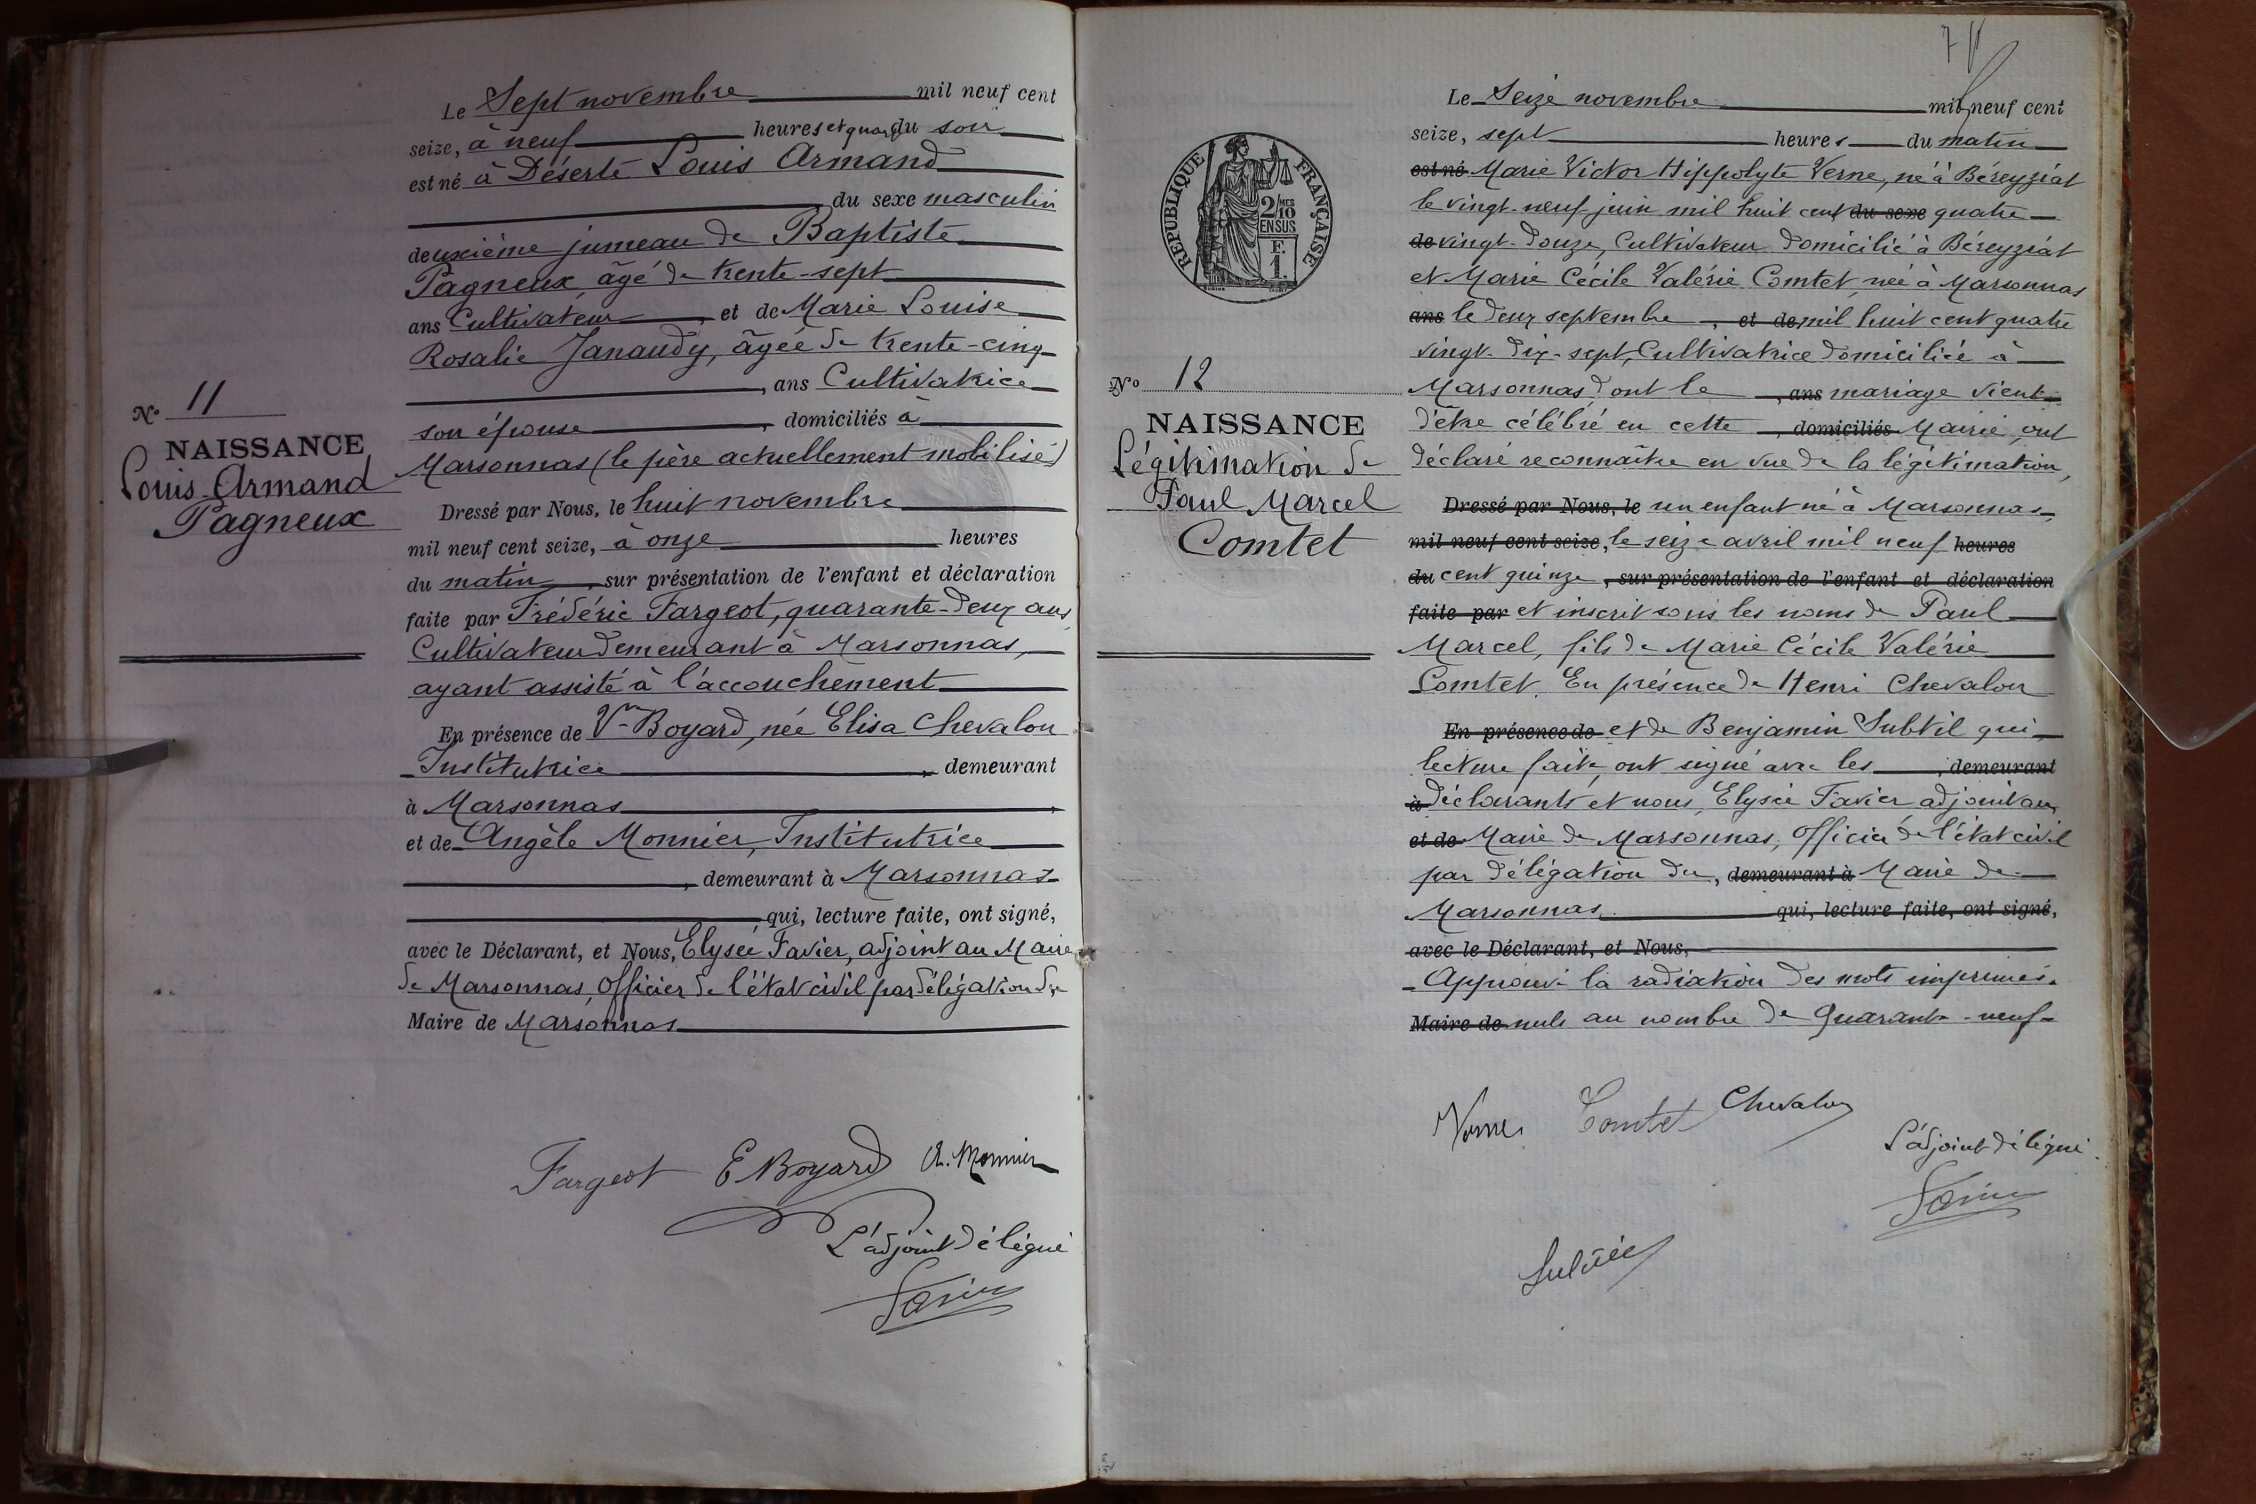 Le Sept novembre mil neuf cent
seize, à neuf heures et quart du soir
est né à Déserte Louis Armand
du sexe masculin
deuxième jumeau de Baptiste
Pagneux âgé de trente-sept
ans Cultivateur, et de Marie Louise
Rosalie Janaudy, âgée de trente-cinq
, ans Cultivatrice
son épouse, domiciliés à
Marsonnas (le père actuellement mobilisé)
N° 11
NAISSANCE
Louis Armand
Pagneux
Dressé par Nous, le huit novembre
mil neuf cent seize, à onze heures
du matin, sur présentation de l'enfant et déclaration
faite par Frédéric Fargeot, quarante-deux ans,
Cultivateur demeurant à Marsonnas,
ayant assisté à l'accouchement
En présence de Vve Boyard, née Elisa Chevalon
Institutrice, demeurant
à Marsonnas,
et de Angèle Monnier, Institutrice
, demeurant à Marsonnas
qui, lecture faite, ont signé,
avec le Déclarant, et Nous, Elysée Favier, adjoint au Maire
de Marsonnas, Officier de l'état civil par délégation du
Maire de Marsonnas
Fargeot E Boyard A. Monnier
L'adjoint délégué
Favier
7
Le Seize novembre mil neuf cent
seize, sept heures du matin
est né Marie Victor Hippolyte Verne, né à Béreyziat
le vingt-neuf juin mil huit cent du sexe quatre
de vingt-douze, Cultivateur domicilié à Béreyziat
et Marie Cécile Valérie Comtet, née à Marsonnas
ans le deux septembre, et de mil huit cent quatre
vingt-dix-sept, Cultivatrice domiciliée à
Marsonnas dont le, ans mariage vient
d'être célébré en cette, domiciliés Mairie, ont
déclaré reconnaître en vue de la légitimation,
RÉPUBLIQUE FRANÇAISE
2/10 MES
EN SUS
F.
1.
N° 12
NAISSANCE
Légitimation de
Paul Marcel
Comtet
Dressé par Nous, le un enfant né à Marsonnas,
mil neuf cent seize, le seize avril mil neuf heures
du cent quinze, sur présentation de l'enfant et déclaration
faite par et inscrit sous les noms de Paul
Marcel, fils de Marie Cécile Valérie
Comtet. En présence de Henri Chevalon
En présence de et de Benjamin Subtil qui,
lecture faite, ont signé avec les, demeurant
à déclarants et nous, Elysée Favier adjoint au,
et de Maire de Marsonnas, Officier de l'état civil
par délégation du, demeurant à Maire de
Marsonnas, qui, lecture faite, ont signé,
avec le Déclarant, et Nous,
Approuvé la radiation des mots imprimés
Maire de nuls au nombre de quarante-neuf
Verne Comtet Chevalon
L'adjoint délégué
Favier